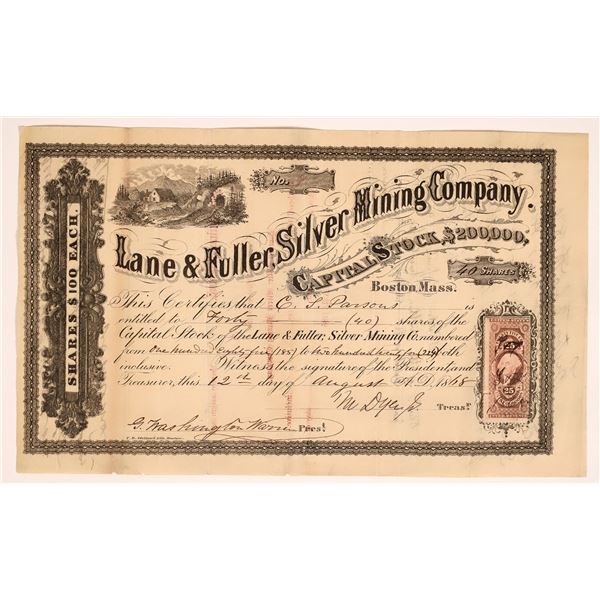 SHARES $100 EACH.
No.
Lane & Fuller, Silver Mining Company.
CAPITAL STOCK, $200,000,
40 SHARES
Boston, Mass.
This Certifies that C. T. Parsons
entitled to Forty (40) shares of the
Capital Stock of the Lane & Fuller, Silver Mining Co. numbered
from One hundred Eighty five (185) to two hundred twenty four (224) both
inclusive. Witness the signature of the President and
Treasurer, this 12th day of August A.D. 1868
Treasr.
G. Washington Warren Prest.
25
25